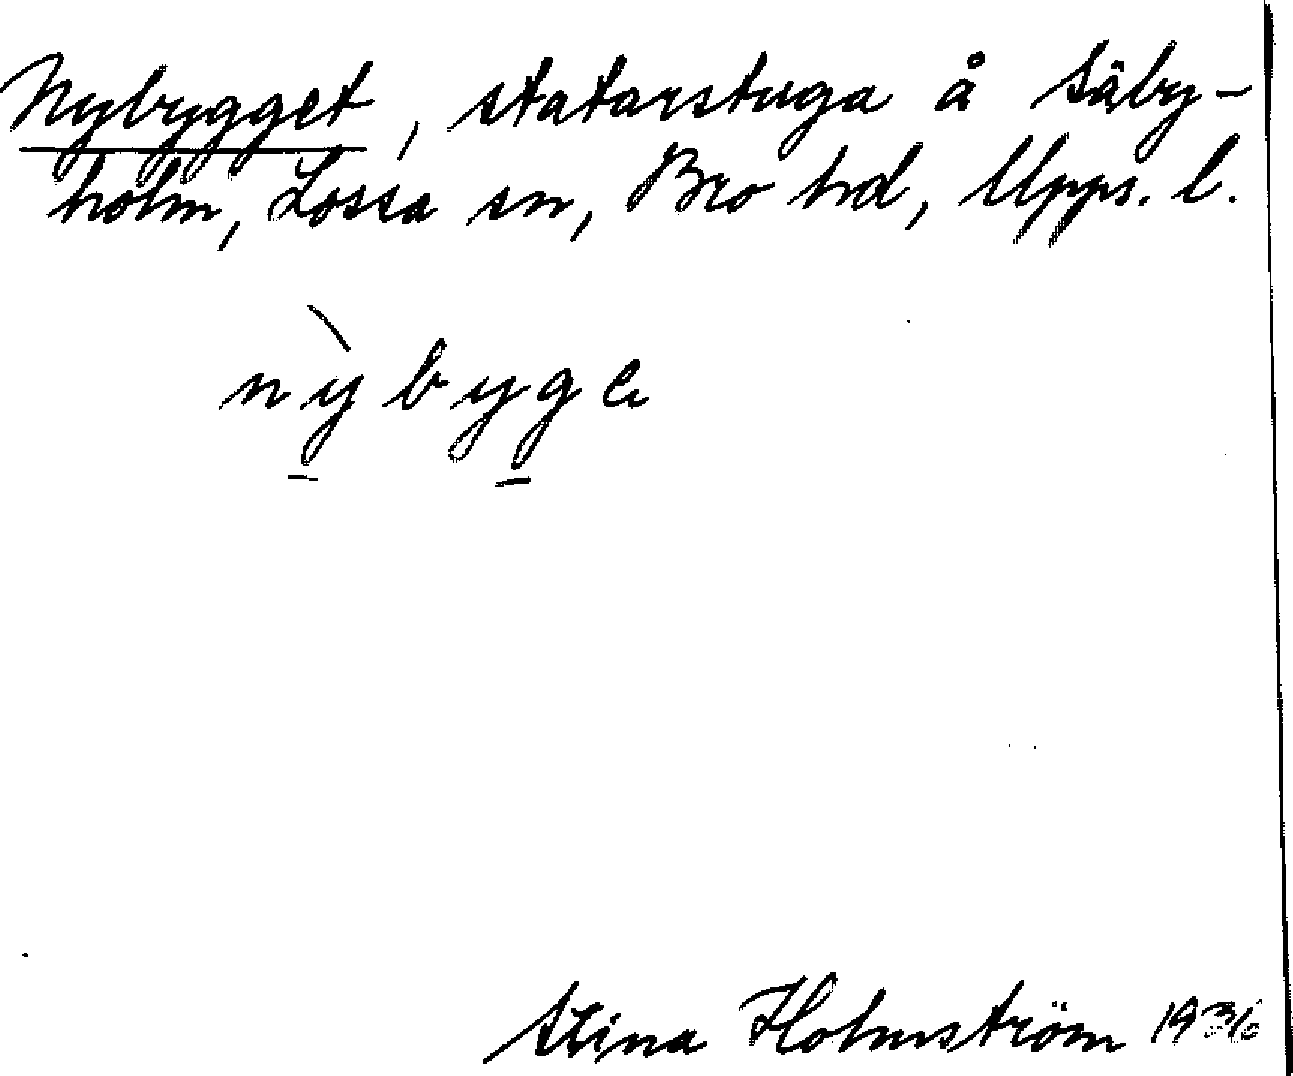 Nybygget, statarstuga å Säby-
holm, Lossa sn, Bro hd, Upps. l.
nỳbyge
Stina Holmström 1936